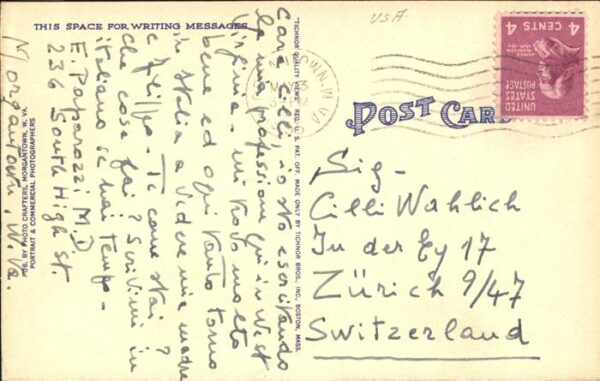 THIS SPACE FOR WRITING MESSAGES
Cara Cilli, io sto esercitando
la mia professione qui in West
Virginia - mi trovo molto
bene ed ogni tanto torno
in Italia a vedere mia madre
e - Te come stai?
che cosa fai? Scrivimi in
italiano se hai tempo -
E. Paparozzi M.D.
236 South High St.
Morgantown, W. Va.
PUB. BY PHOTO CRAFTERS, MORGANTOWN, W. VA.
PORTRAIT & COMMERCIAL PHOTOGRAPHERS
"TICHNOR QUALITY VIEWS" REG. U. S. PAT. OFF. MADE ONLY BY TICHNOR BROS., INC., BOSTON, MASS.
USA
POST CARD
UNITED
STATES
POSTAGE
4 CENTS 4
Sig-
Cilli Wahlich
In der Ey 17
Zürich 9/47
Switzerland